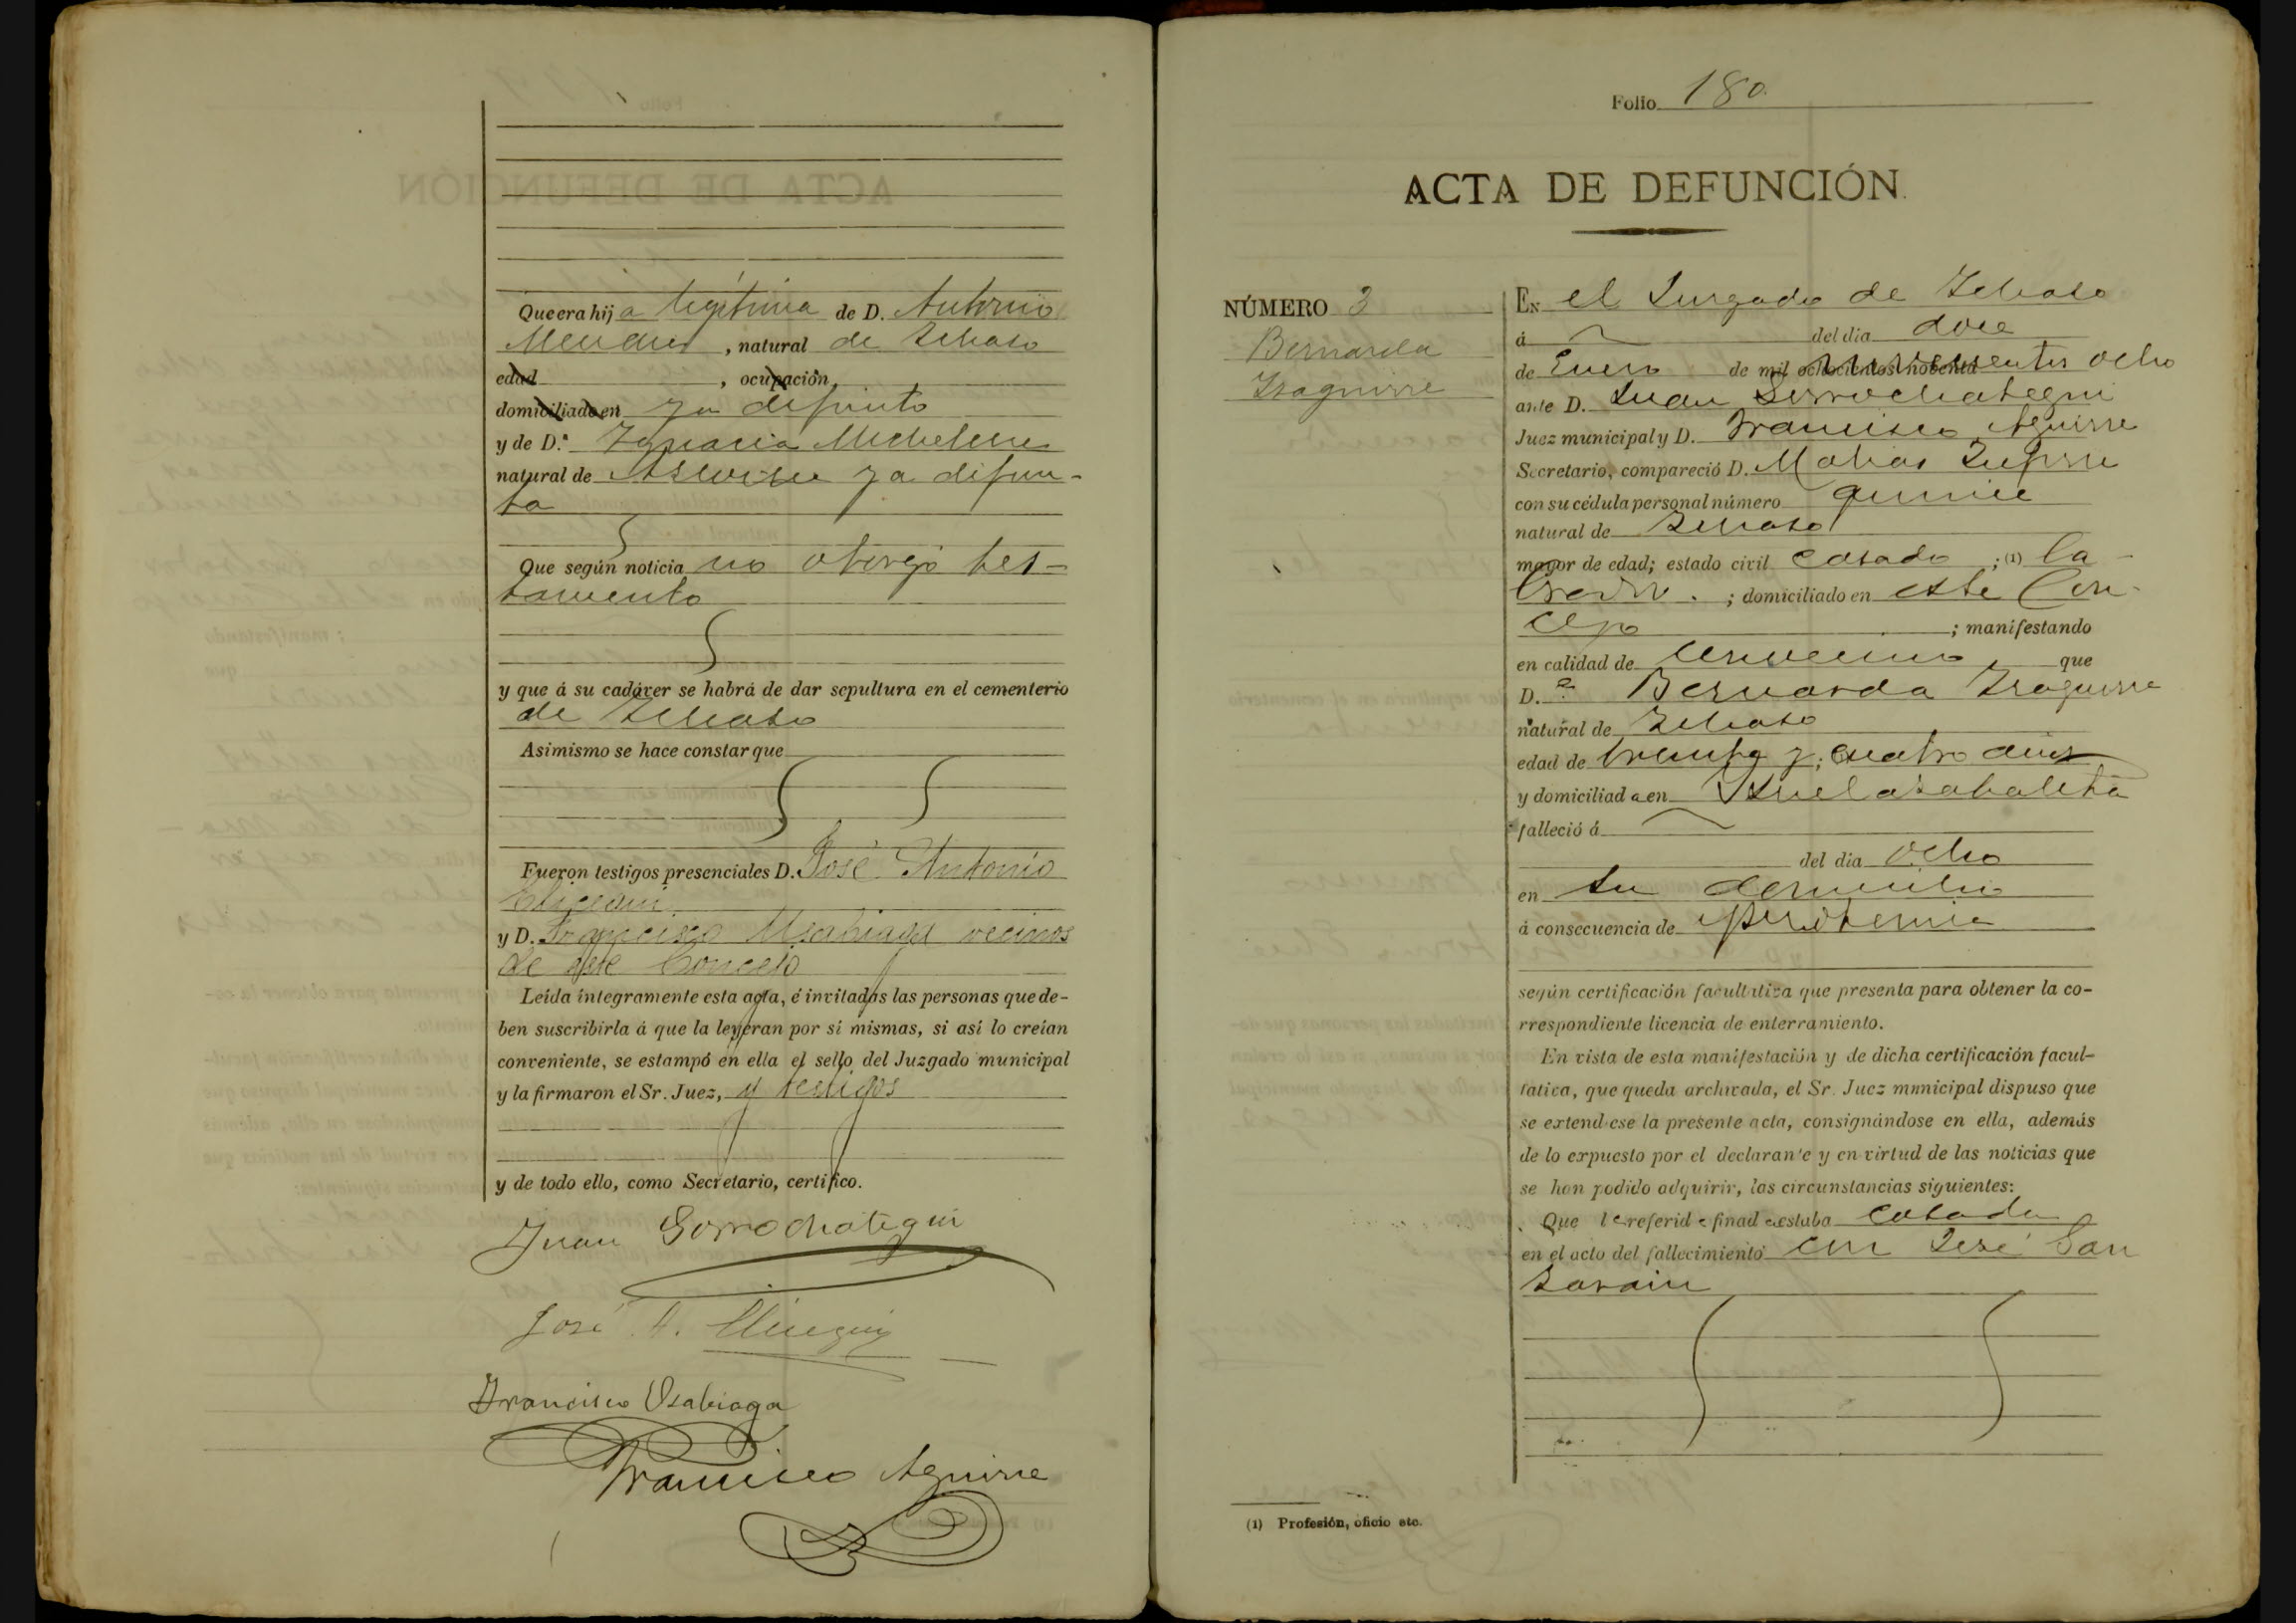 Que era hija legitima de D. Antonio
, natural de
edad , ocupación,
domiciliado en ya difunto
y de D.ª Ignacia Michelena
natural de ya difun-
ta
Que según noticia no otorgó tes-
tamento
y que á su cadáver se habrá de dar sepultura en el cementerio
de
Asimismo se hace constar que
Fueron testigos presenciales D. José Antonio
y D. Francisco Usabiaga vecinos
de este Concejo
Leída íntegramente esta acta, é invitadas las personas que de-
ben suscribirla á que la leyeran por sí mismas, si así lo creían
conveniente, se estampó en ella el sello del Juzgado municipal
y la firmaron el Sr. Juez, y testigos
y de todo ello, como Secretario, certifico.
Juan Gorrochategui
José A.
Francisco Usabiaga
Francisco Aguirre
Folio 180
ACTA DE DEFUNCIÓN.
NÚMERO 3
Bernarda
Izaguirre
EN el Juzgado de
á del dia doce
de Enero de mil ochocientos noventa ocho
ante D. Juan Gorrochategui
Juez municipal y D. Francisco Aguirre
Secretario, compareció D.
con su cédula personal número quince
natural de
mayor de edad; estado civil casado ; (1) la-
brador. ; domiciliado en este Con-
cejo ; manifestando
en calidad de que
D.ª Bernarda Izaguirre
natural de
edad de treinta y cuatro años
y domiciliada en
falleció á
del dia ocho
en su domicilio
á consecuencia de
según certificación facultativa que presenta para obtener la co-
rrespondiente licencia de enterramiento.
En vista de esta manifestación y de dicha certificación facul-
tativa, que queda archivada, el Sr. Juez municipal dispuso que
se extendiese la presente acta, consignándose en ella, además
de lo expuesto por el declarante y en virtud de las noticias que
se han podido adquirir, las circunstancias siguientes:
Que la referida finada estaba casada
en el acto del fallecimiento con José
(1) Profesión, oficio etc.